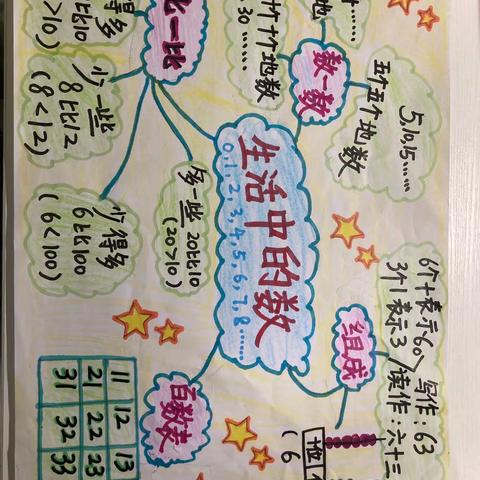 生活中的数
0,1,2,3,4,5,6,7,8……
数一数
地
十个十个地数
30……
5,10,15……
五个五个地数
比一比
得多
比10
>10)
少一些
8比12
(8<12)
少得多
6比100
(6<100)
多一些 20比10
(20>10)
组成
6个十表示60 写作:63
3个1表示3 读作:六十三
十位
(6
百数表
11 12 13
21 22 23
31 32 33